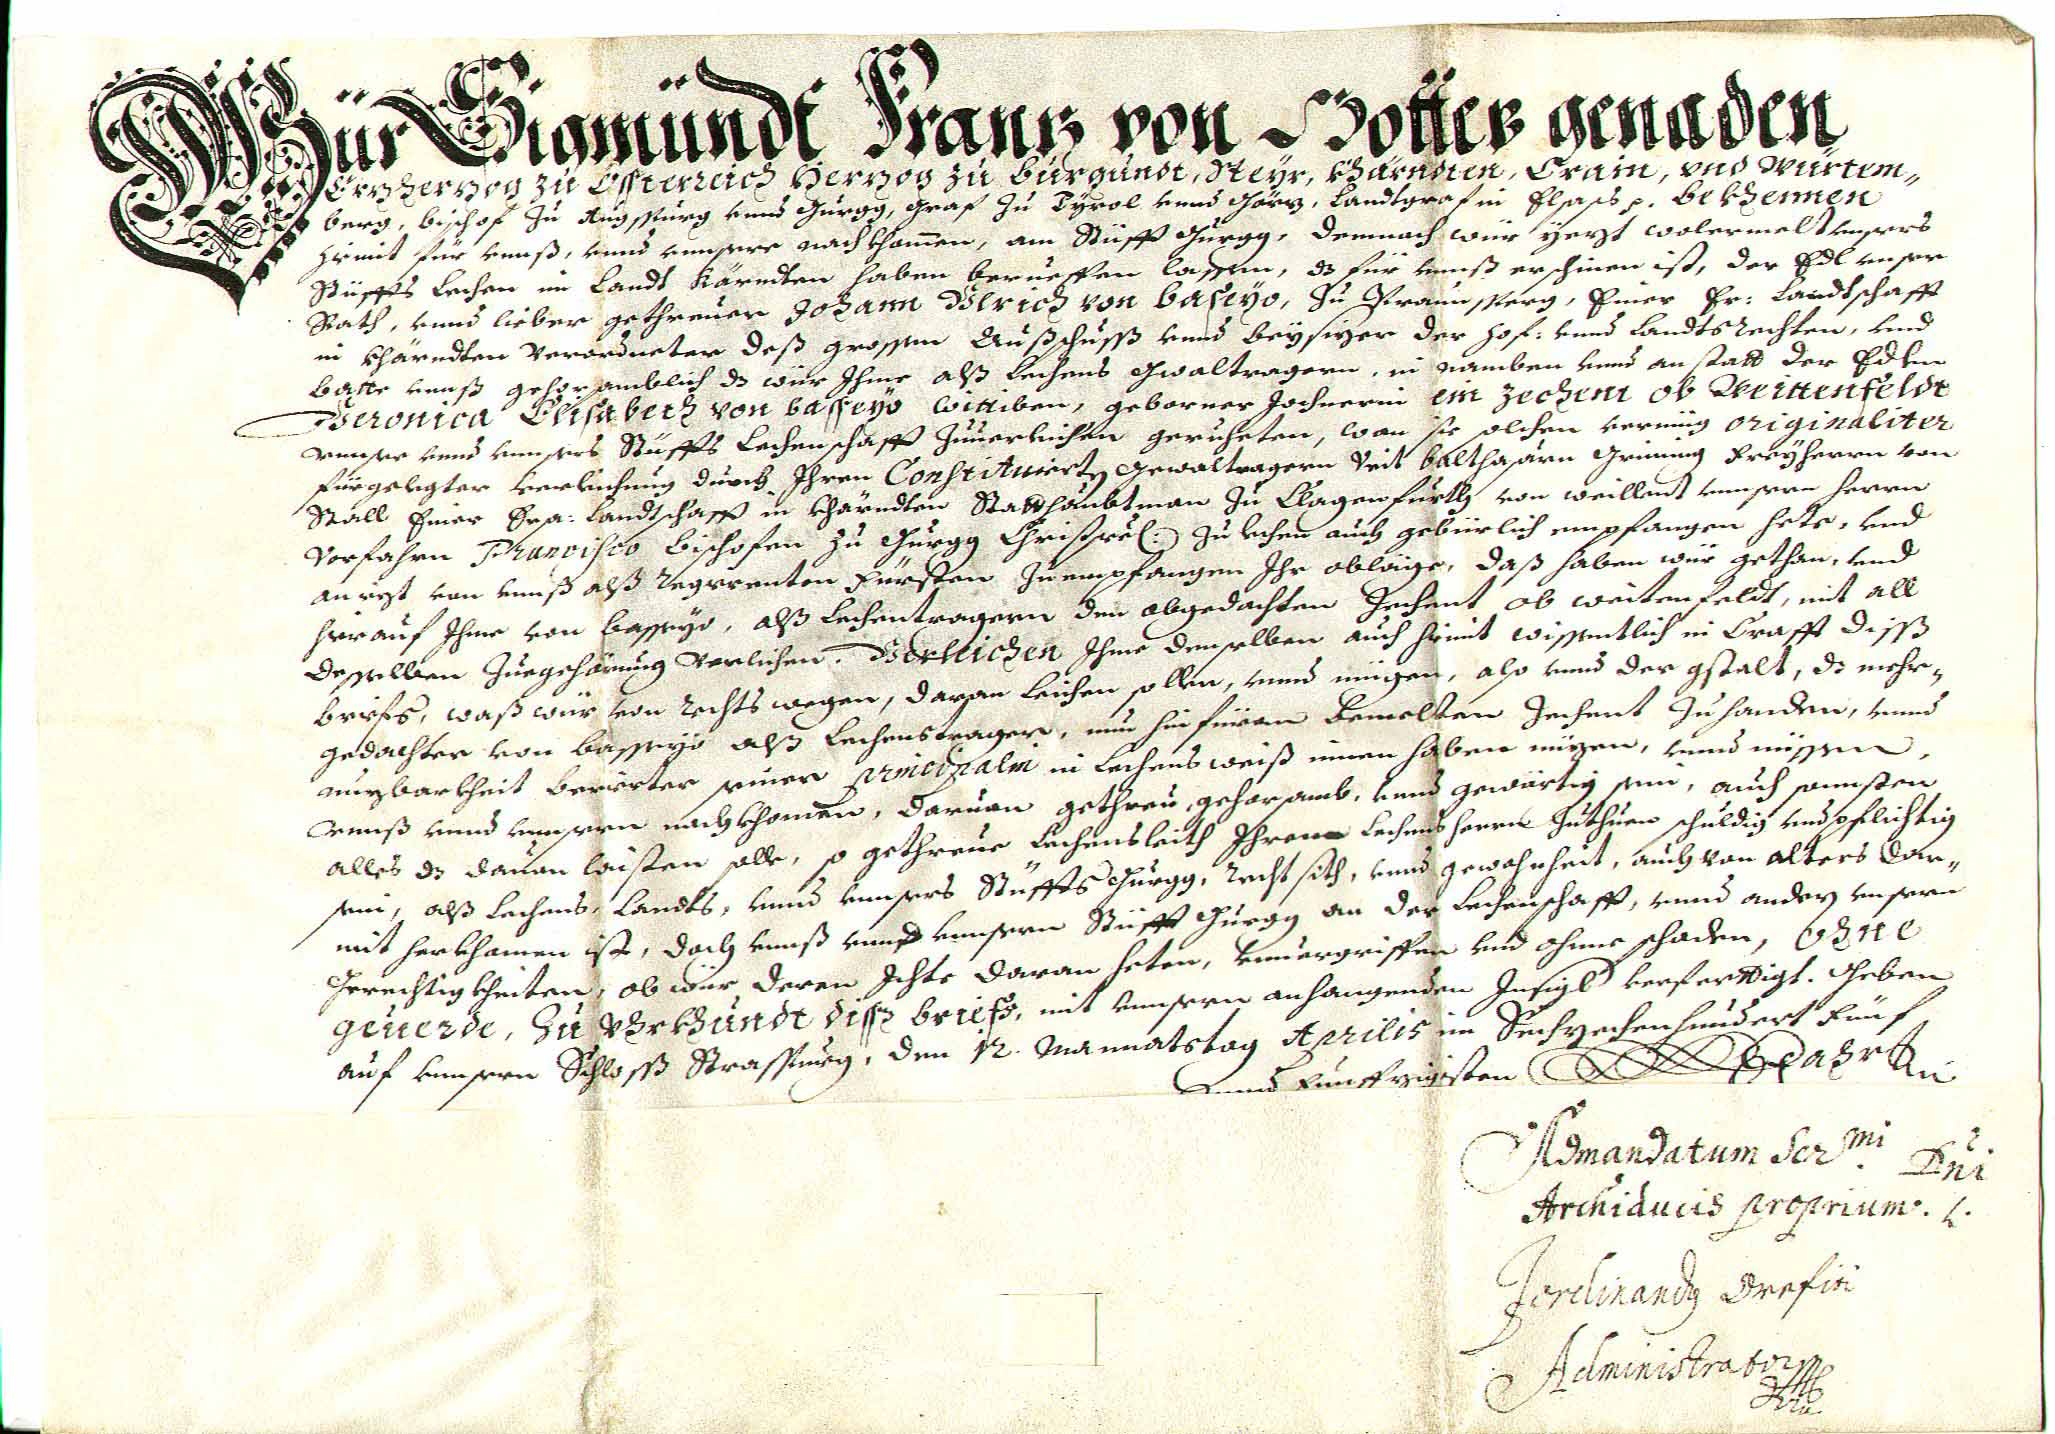 Wür Sigmundt Franz von Gottes genaden
Erzherzog zu Össterreich Herzog zu Burgundt, Steyr, Khärndten, Crain, vnd Würtem-
berg, Bischof zu Augspurg vnnd Gurgg, Graf zu Tyrol vnnd Görz, Landtgraf in Elsass p. Bekhennen
hiemit für vnnß, vnnd vnnsere nachkhomen, am Stüfft Gurgg, demnach wür yezt wolermelt vnsers
Stüffts Lechen im Landt Kärndten haben berueffen lassen, dz für vnnß erschinen ist, der Edl vnser
Rath, vnnd lieber gethreuer Johann Vlrich von Baseyo, zu Praunsperg, Einer Er: Landtschafft
in Khärndten Verordneter deß grossen Außschuss vnnd Beysizer der Hof: vnnd Landts Rechten, vnd
batte vnnß gehorsamblich dz wür Ihme alß Lechens Gwaltragern, in namben vnnd anstatt der Edlen
Veronica Elisabeth von Basseyo wittiben, geborner Jochnerin ein Zechent ob Weittenfeldt
vnser vnnd vnnsers Stüffts Lechenschafft zuuerleichen geruheten, wan sie solchen vermüg originaliter
fürgelegter verleichung durch Ihren Constituierten Gewaltragern Veit Balthasarn Grining Freyherrn von
Stall Einer Ersa: Landtschafft in Khärndten Statthaubtman zu Clagenfurth von weillent vnnserm Herrn
Vorfahrn Francisco Bischofen zu Gurgg Christseel: zu Lehen auch gebürlich empfangen hete, vnd
an iezt von vnnß alß Regierenten Fürsten zuempfangen Ihr obläge, daß haben wür gethan, vnd
hierauf Ihme von Basseyo, alß Lechentragern den obgedachten Zechent ob Weitenfeldt, mit all
desselben zuegehörung verlichen. Verleichen Ihme denselben auch hiemit wissentlich in Crafft diss
briefs, waß wür von Rechts wegen, daran leichen sollen, vnnd mügen, also vnnd der gstalt, dz mehr-
gedachter von Basseyo alß Lechenstrager, nun hinfüran bemelten Zechent zuhanden, vnnd
nuzbarkheit berierter seiner principalin in Lechensweiß innen haben nüzen, vnnd niessen,
vnnß vnnd vnnsern nachkhomen, daruon gethreu, gehorsamb, vnnd gewärtig sein, auch sonnsten
alles dz dauon laisten solle, so gethreue Lechensleith Ihrem Lechensherrn zuthuen schuldig vnd pflichtig
sein, alß Lechens, Landts, vnnd vnnsers Stüffts Gurgg, Recht sith, vnnd gewohnheit, auch von alters dar-
mit herkhomen ist, doch vnnß vnnd vnnserm Stüfft Gurgg an der Lechenschafft, vnnd andern vnsern
Gerechtigkheiten, ob wür deren Ichte daran heten, vnuergriffen vnd ohne schaden, Ohne
geuerde, Zu Vhrkhundt diss briefs, mit vnnserm anhangenden Insigl verferttigt. Geben
auf vnnserm Schloss Strasspurg, den 12. Monnatstag Aprilis im Sechzechenhundert Fünf
vnnd Funffzigisten Jahr
Ad mandatum Serᵐⁱ Dni
Archiducis proprium.
Ferdinandy Orefici
Administrator